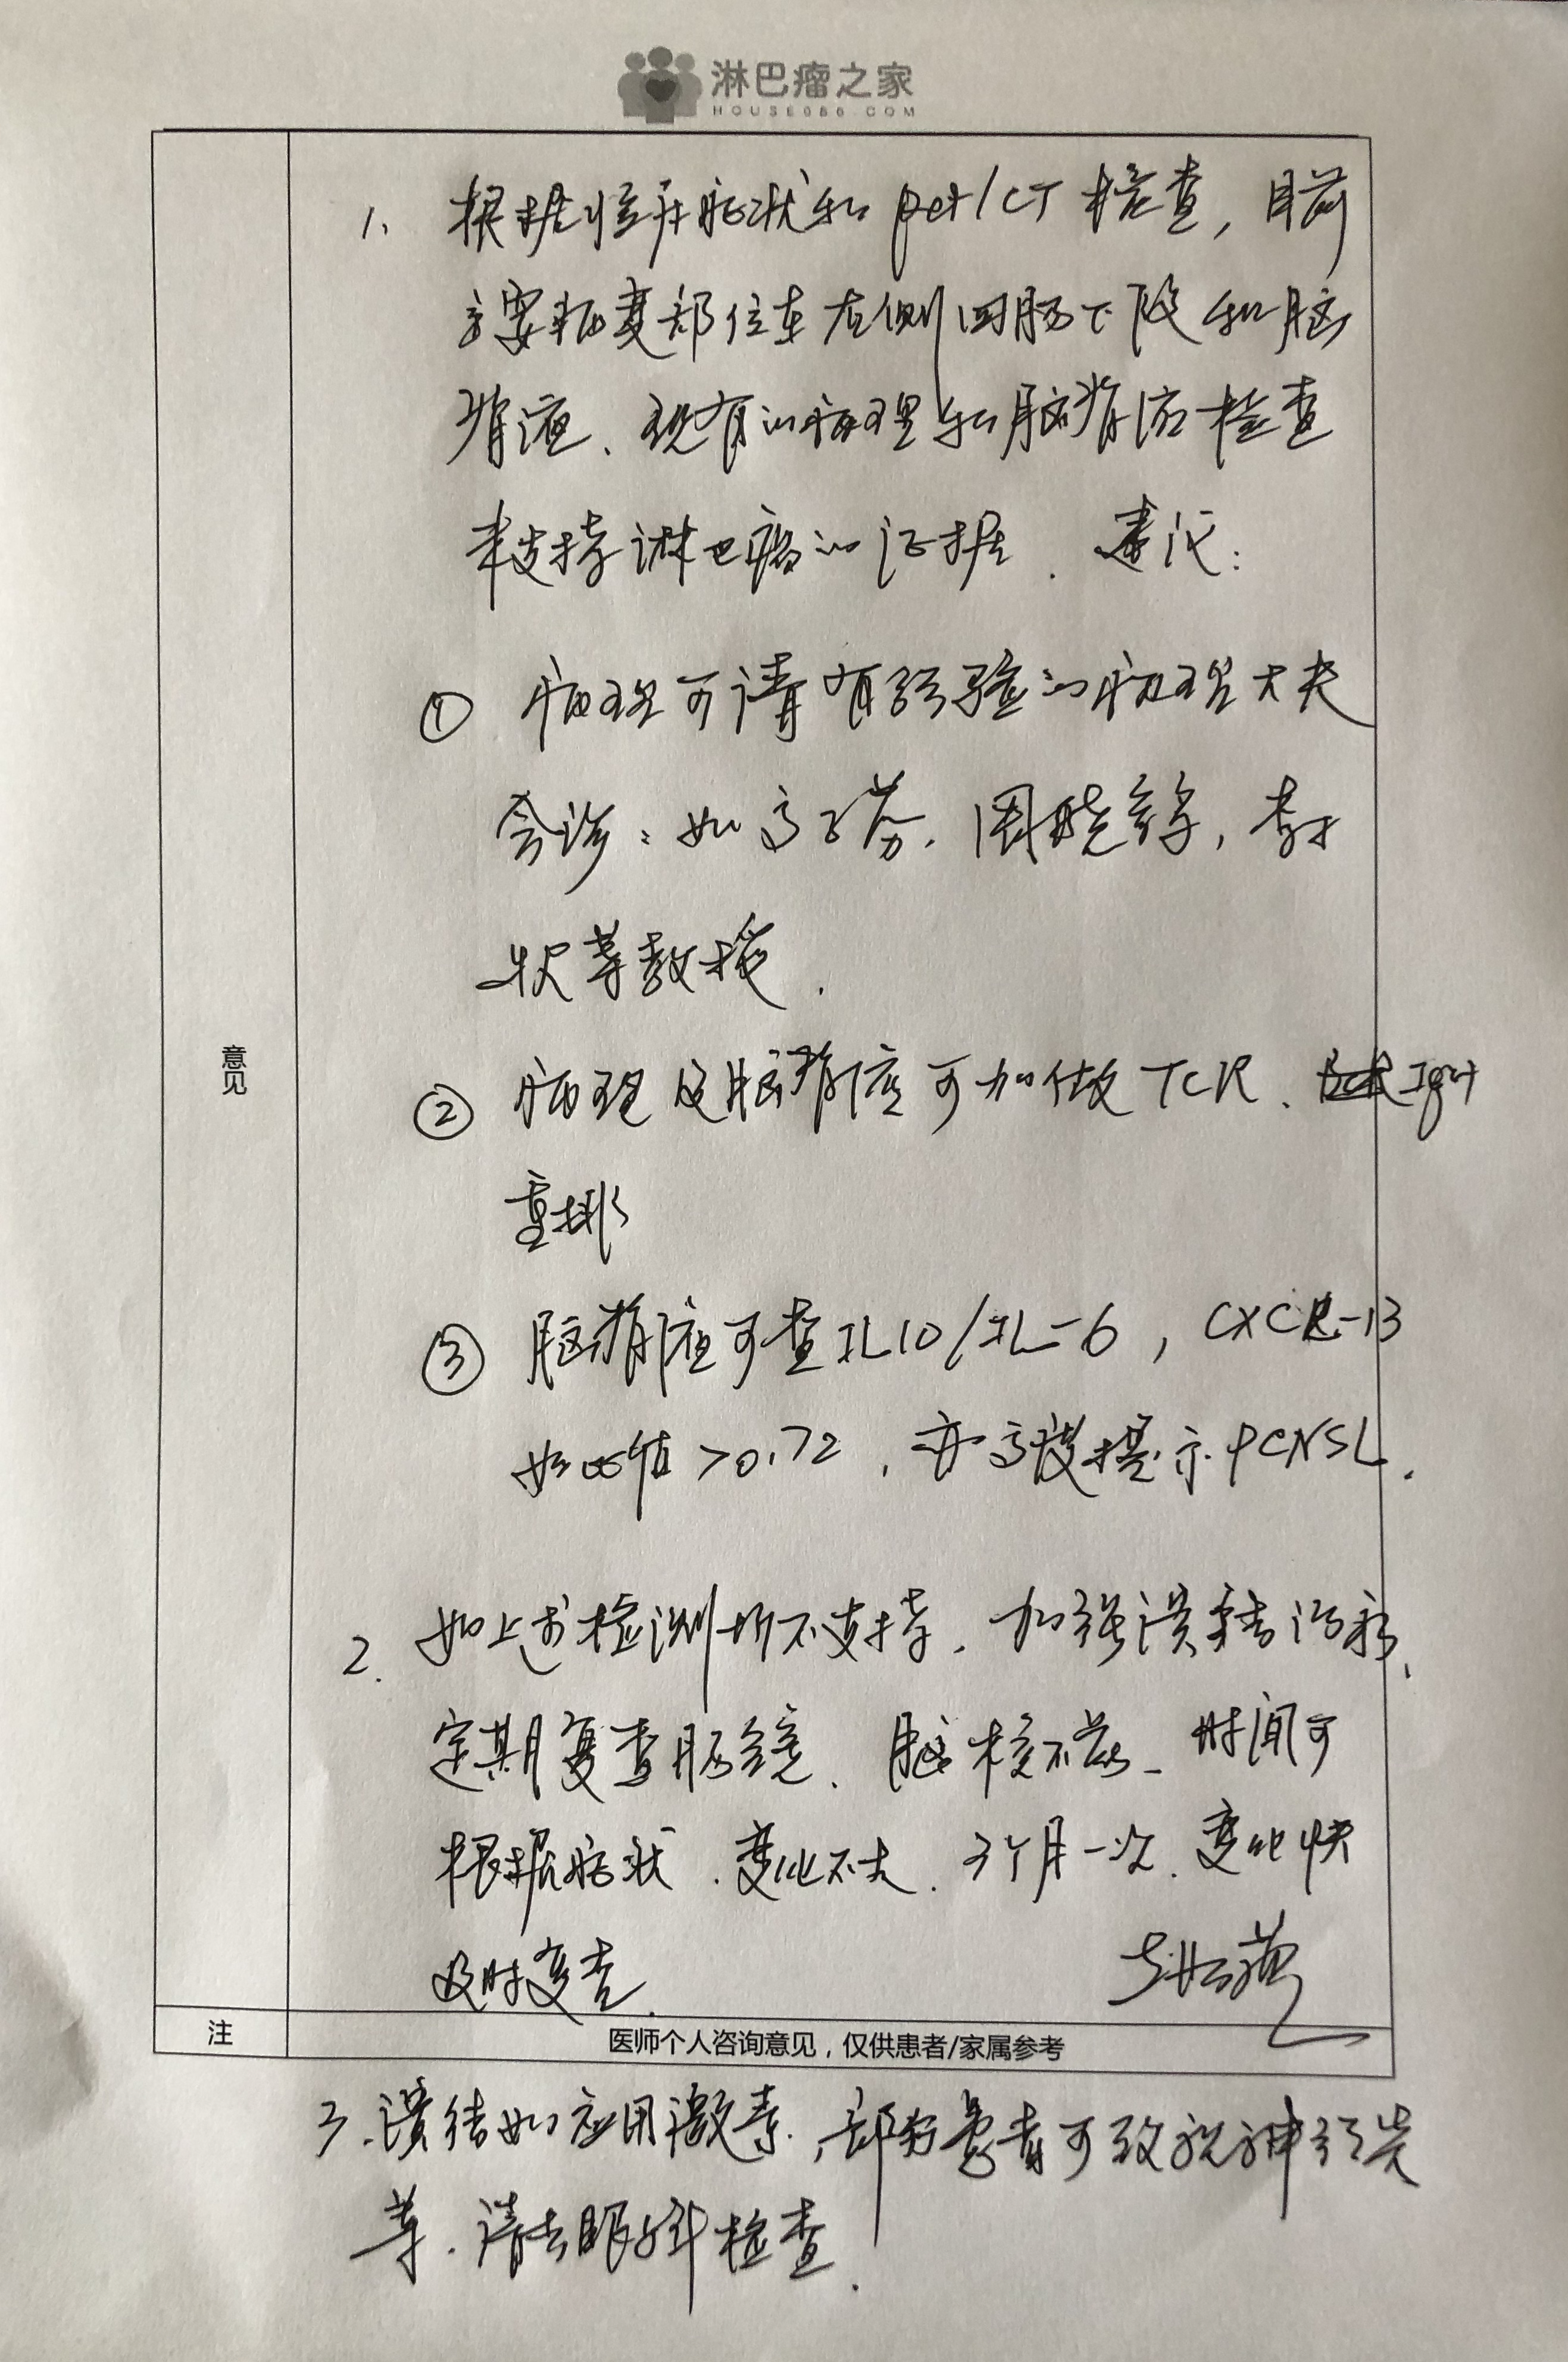 淋巴瘤之家
HOUSE086.COM
意见
1、根据临床症状和pet/CT检查，目前
主要病变部位在右侧回肠下段和脑
脊液、现有的病理和脑脊液检查
未支持淋巴瘤的证据．建议：
① 病理可请有经验的病理大夫
会诊：如高子芬、周晓鸽，
等教授．
② 病理及脑脊液可加做TCR、IgH
重排
③ 脑脊液可查IL10/IL-6，CXCL-13
如比值>0.72，亦高度提示PCNSL．
2．如上述检测均不支持．加强溃结治疗、
定期复查肠镜、脑核磁．时间可
根据症状．变化不大．3个月一次．变化快
及时复查．
注 医师个人咨询意见，仅供患者/家属参考
3．溃结如应用激素．，部分患者可致视神经炎
等．请去眼科检查．